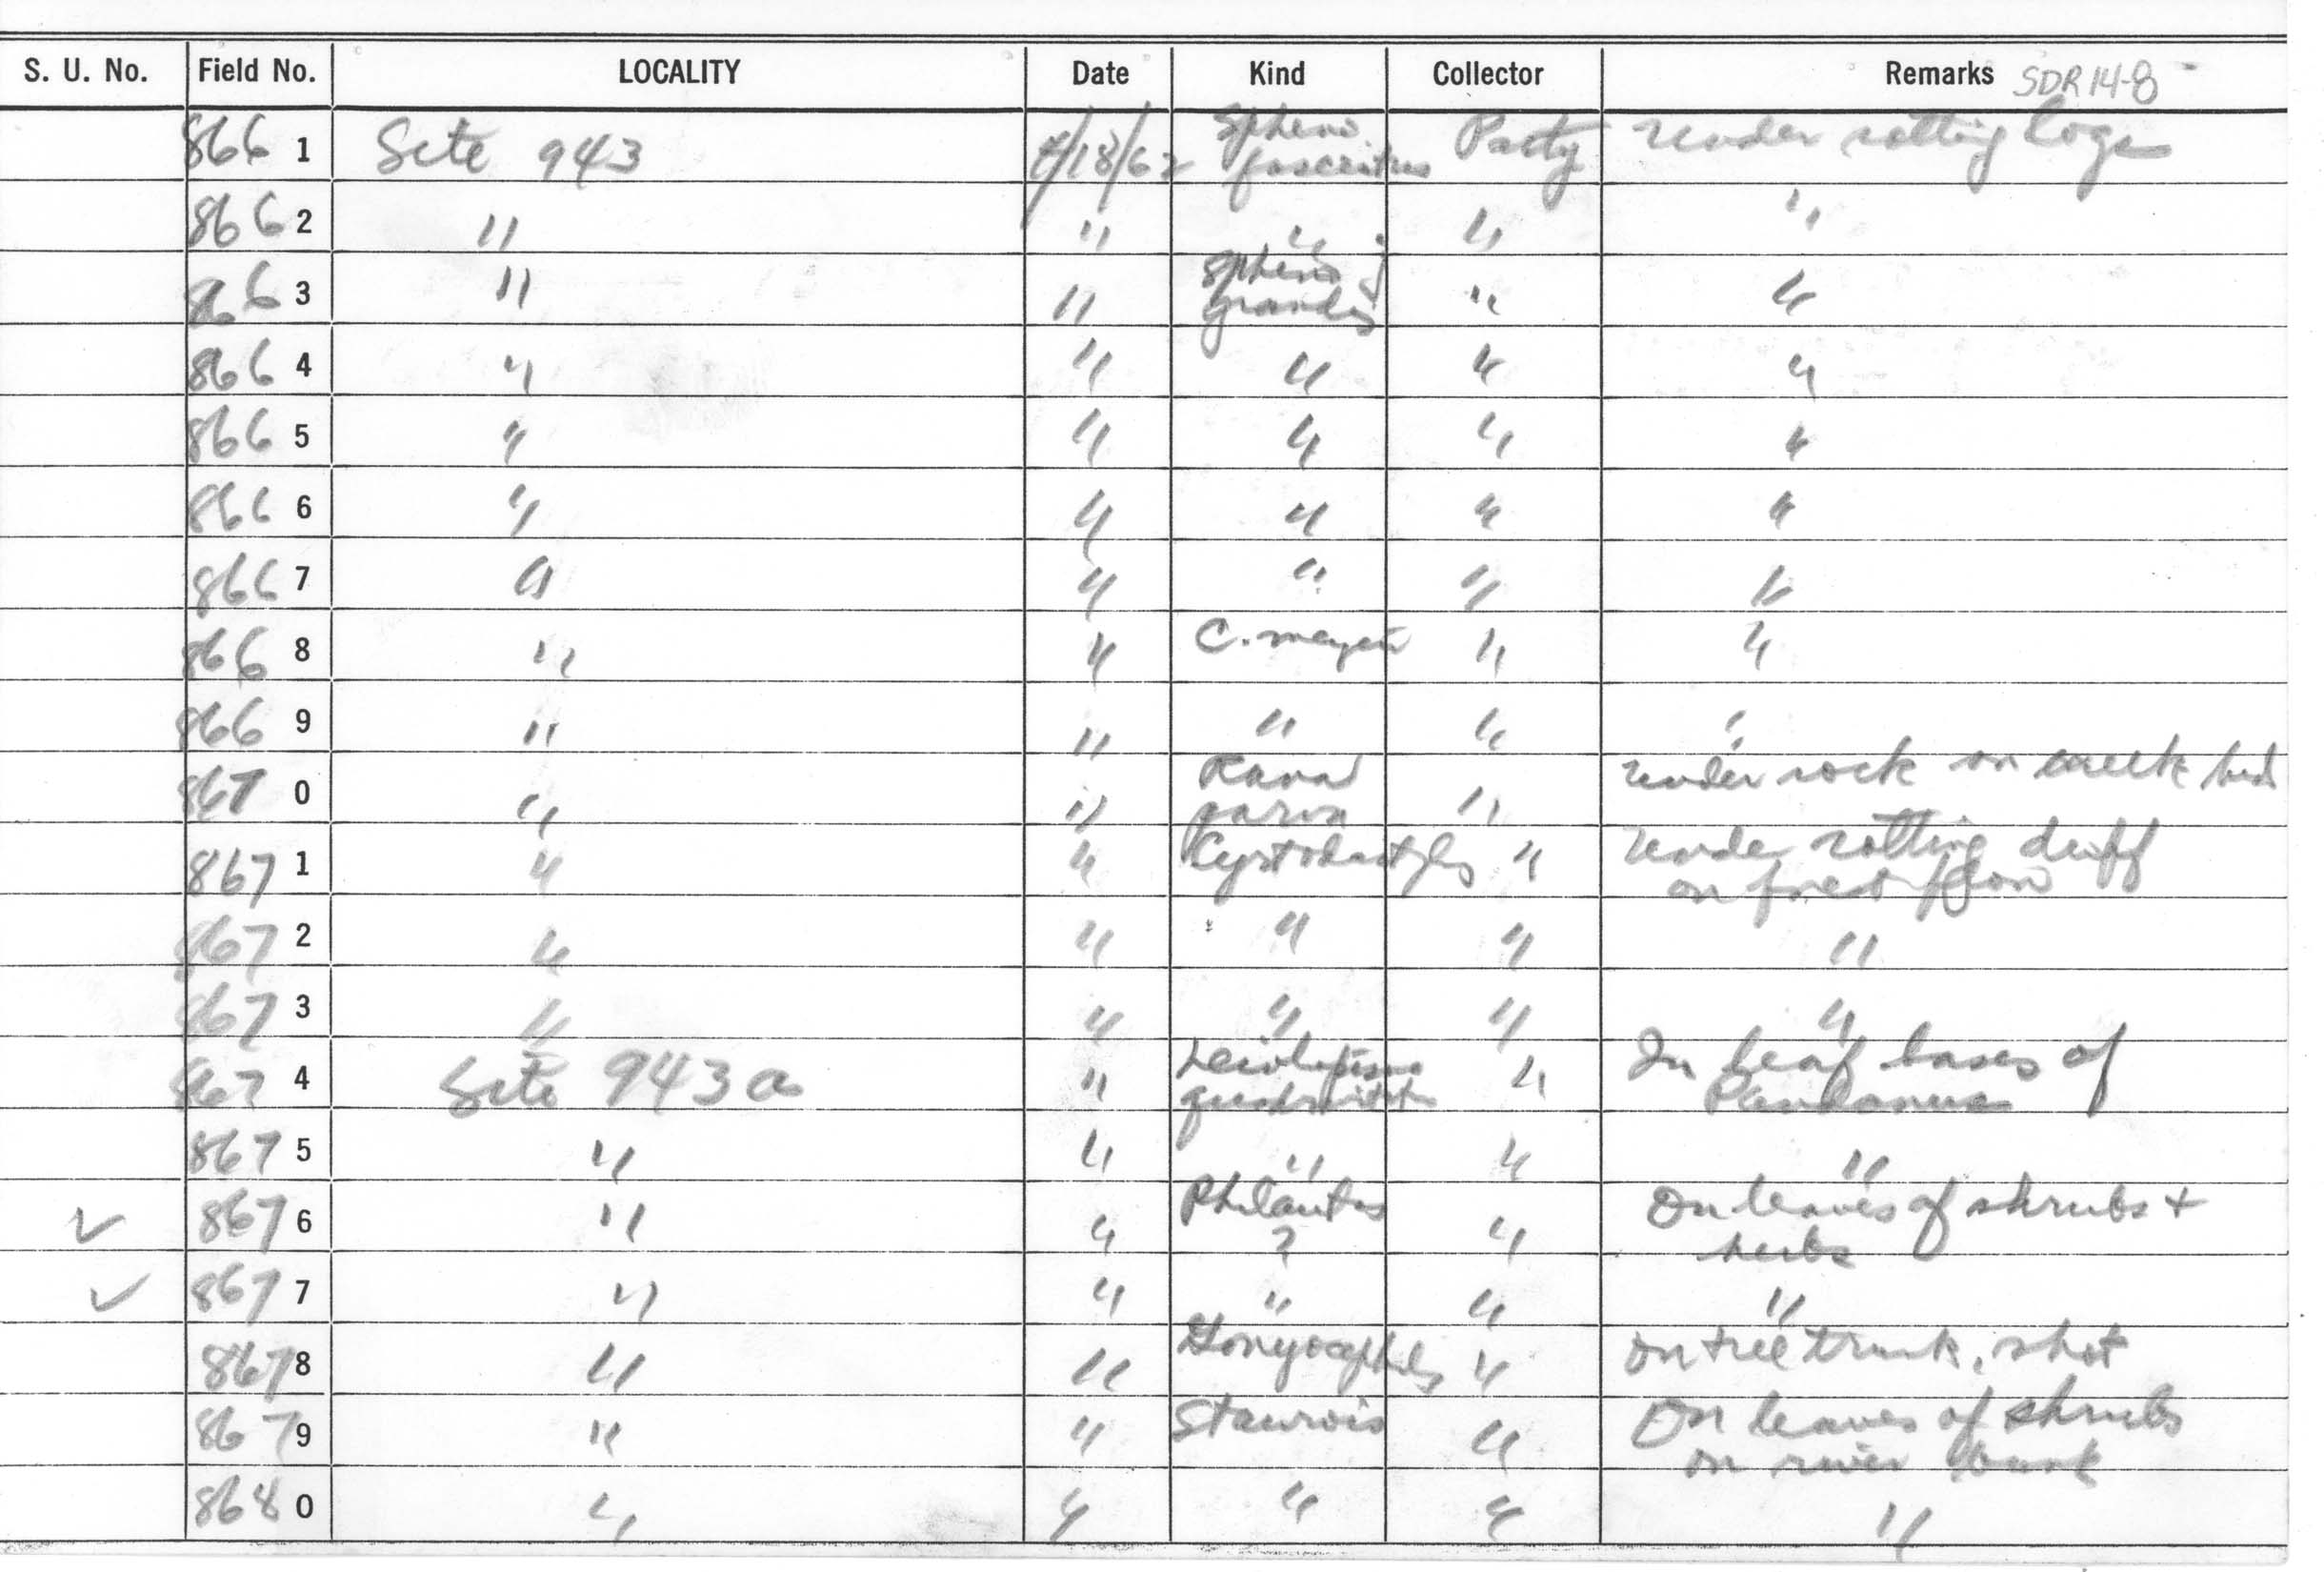 S. U. No. Field No. LOCALITY Date Kind Collector Remarks SDR 14-8
866 1 Site 943 4/18/62 Spheno fasciatus Party Under rotting logs
866 2 " " " " "
866 3 " " Spheno grandis " "
866 4 " " " " "
866 5 " " " " "
866 6 " " " " "
866 7 " " " " "
866 8 " " C. " "
866 9 " " " " "
867 0 " " Rana parva " Under rock on creek bed
867 1 " " Cyrtodactylus " Under rotting duff
on forest floor
867 2 " " " " "
867 3 " " " " "
867 4 Site 943a " Leiolopisma " In leaf bases of
Pandanus
867 5 " " " " "
✓ 867 6 " " Philautus ? " On leaves of shrubs +
herbs
✓ 867 7 " " " " "
867 8 " " Gonyocephalus " On tree trunk, shot
867 9 " " Staurois " On leaves of shrubs
on river bank
868 0 " " " " "